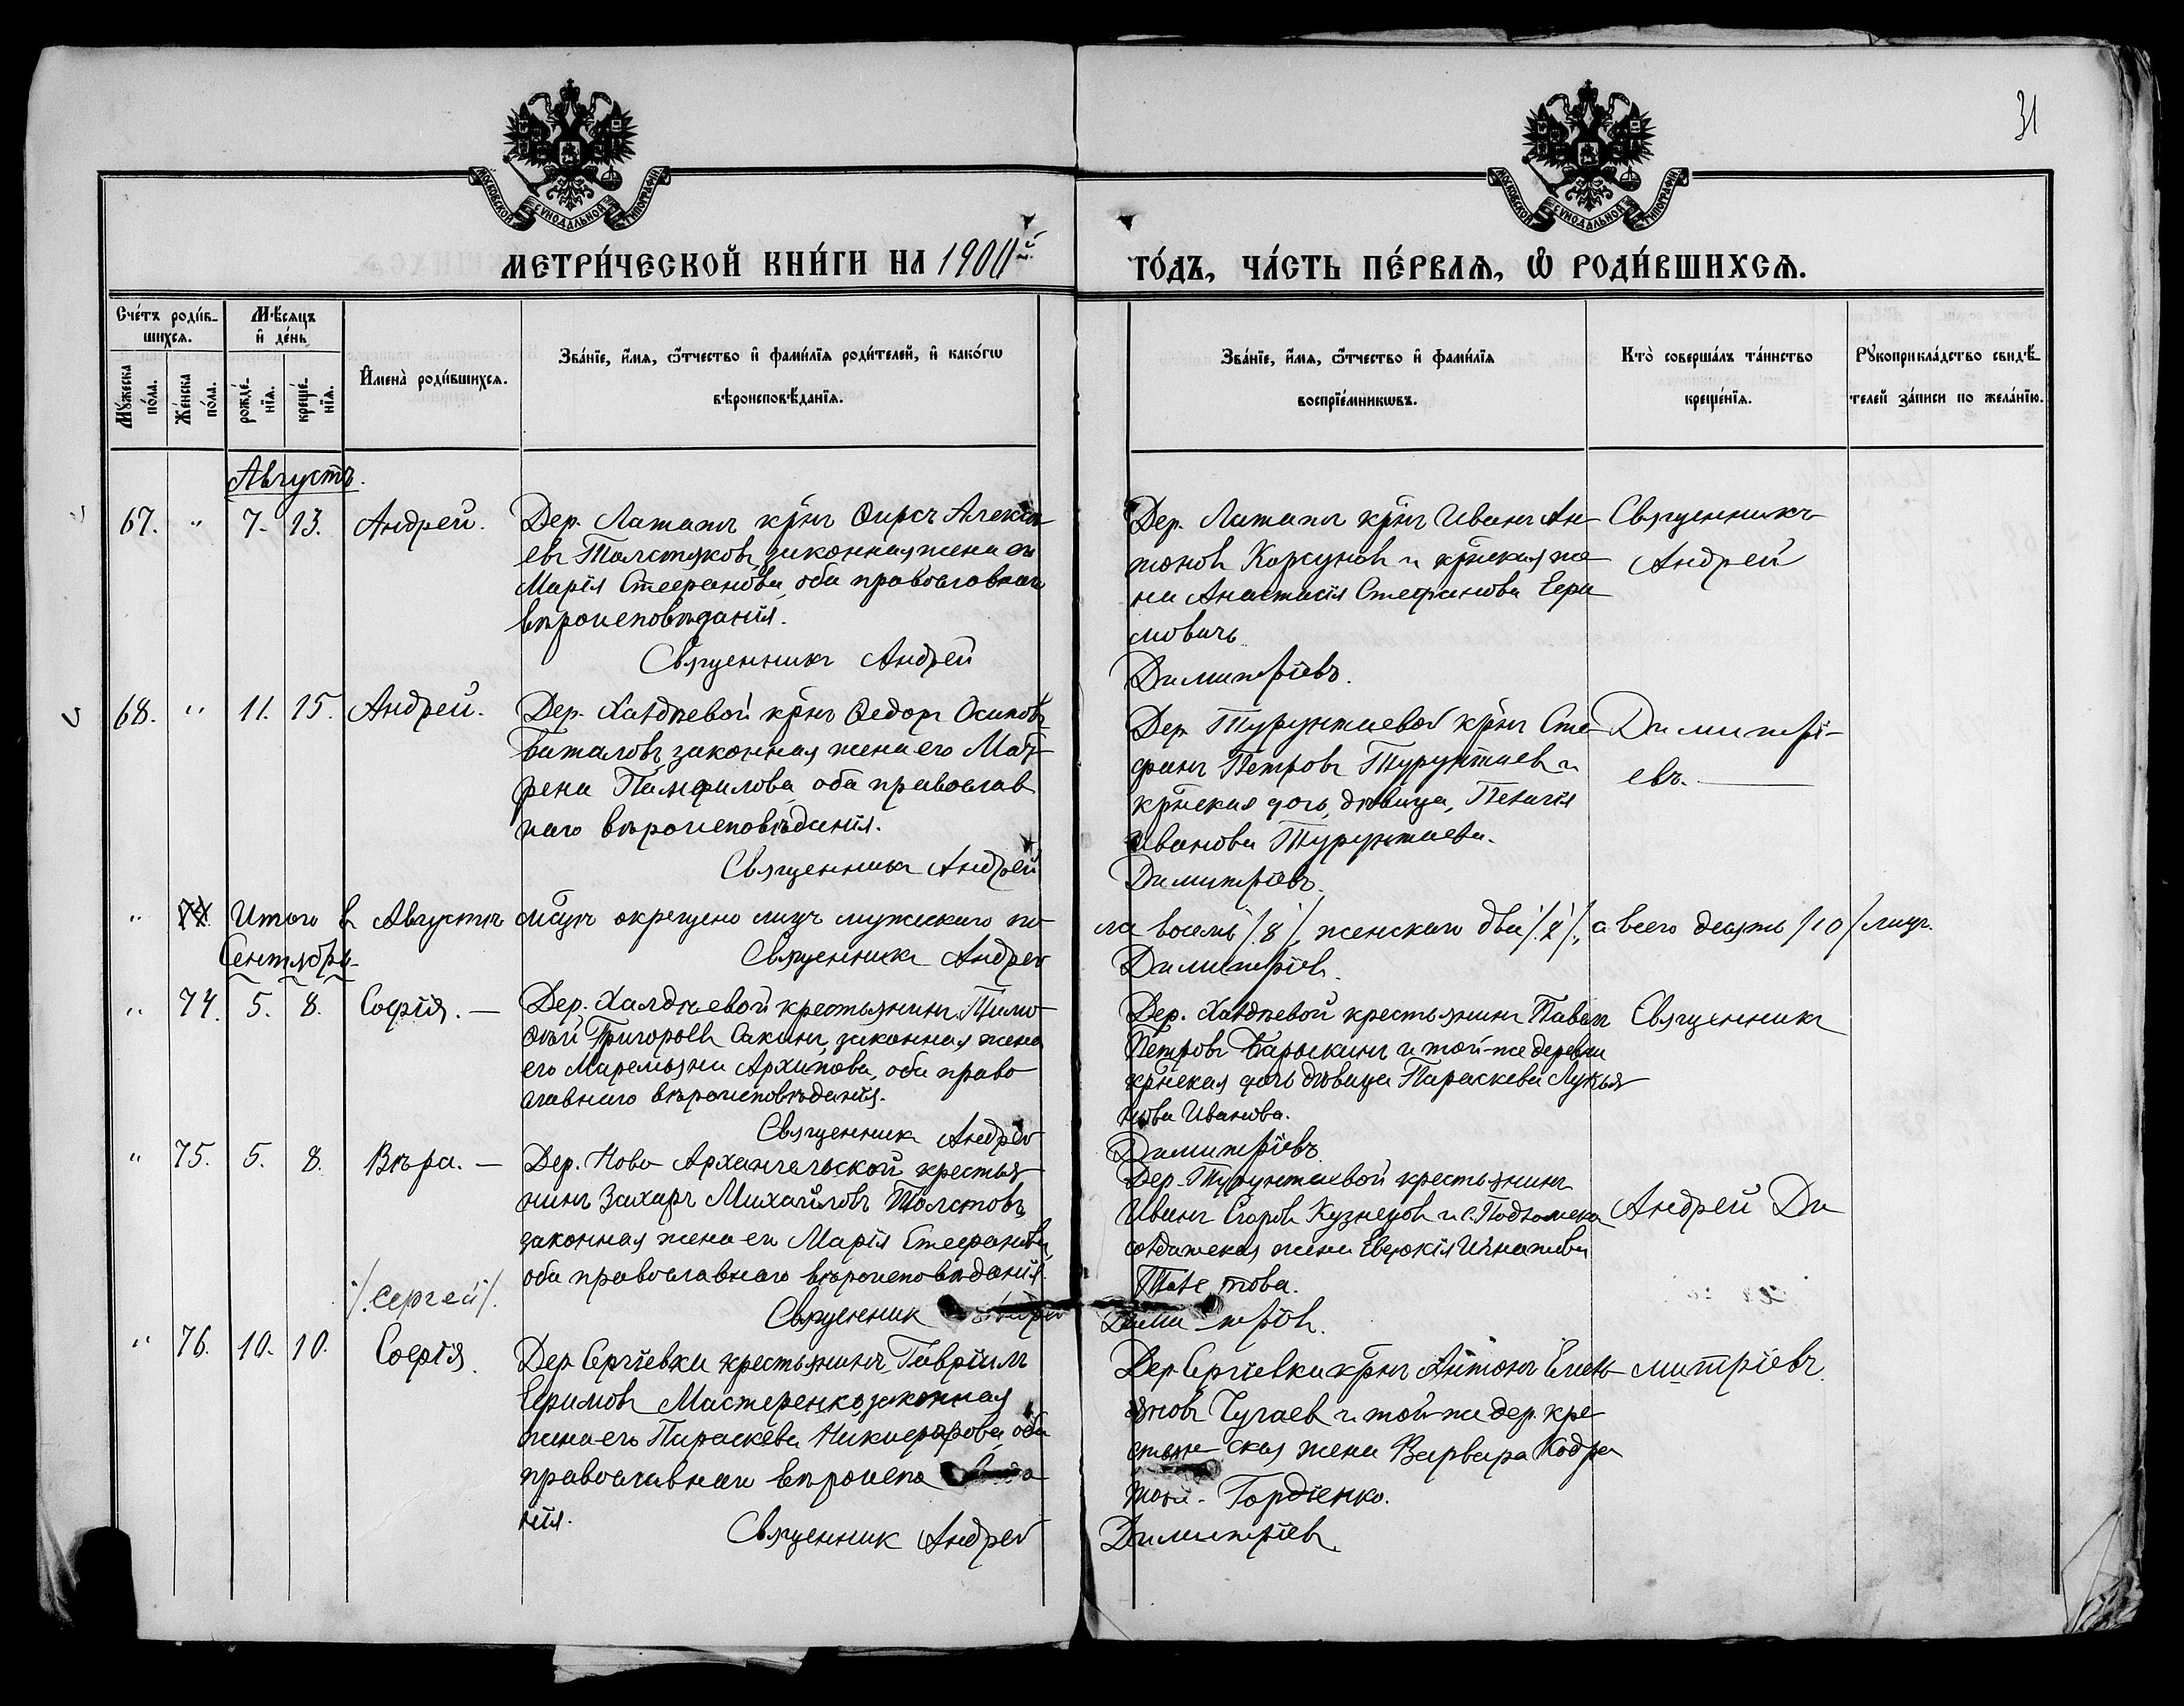 31
МОСКОВСКОЙ СѴНОДАЛЬНОЙ ТИПОГРАФІИ
МОСКОВСКОЙ СѴНОДАЛЬНОЙ ТИПОГРАФІИ
МЕТРИ́ЧЕСКОЙ КНИ́ГИ НА 1900й
ГО́ДЪ, ЧА́СТЬ ПЕ́РВАѦ, Ѽ РОДИ́ВШИХСѦ.
Сче́тъ роди́в-
шихсѧ.
Мꙋжеска по́ла.
Же́нска по́ла.
Мѣ́сѧцъ
и҆ де́нь
рожде́-
нїѧ.
креще́-
нїѧ.
И҆мена̀ роди́вшихсѧ.
Зва́нїе, и҆́мѧ, ѻ҆́тчество и҆ фами́лїѧ роди́телей, и҆ како́гѡ
вѣроисповѣ́данїѧ.
Зва́нїе, и҆́мѧ, ѻ҆́тчество и҆ фами́лїѧ
воспрїе́мникѡвъ.
Кто̀ соверша́лъ та́инство
креще́нїѧ.
Рꙋкоприкла́дство свидѣ́-
телей за́писи по жела́нїю.
Августъ.
67. " 7. 13. Андрей.
Дер. Лататъ крнъ Ѳирсъ Алексѣ-
евъ Толстяковъ, законная жена его
Марія Стефанова, оба православнаго
вѣроисповѣданія.
Священникъ Андрей
Дер. Лататъ крнъ Иванъ Ан-
тоновъ Корсуновъ и крнская же-
на Анастасія Стефанова Ефи
мовичъ
Димитріевъ.
Священникъ
Андрей
68. " 11. 15. Андрей.
Дер. Халдѣевой крнъ Ѳедоръ Осиповъ
Баталовъ, законная жена его Мат-
рена Памфилова, оба православ
наго вѣроисповѣданія.
Священникъ Андрей
Дер. Турунтаевой крнъ Сте-
фанъ Петровъ Турунтаевъ и
крнская дочь, дѣвица, Пелагія
Иванова Турунтаева.
Димитріевъ.
Димитрі-
евъ.
" Итого въ Августѣ мѣсяцѣ окрещено лицъ мужескаго по-
ла восемь /8/, женскаго два /2/, а всего десять /10/ лицъ.
Священникъ Андрей
Димитріевъ.
Сентябрь
" 74. 5. 8. Софія. —
Дер. Халдѣевой крестьянинъ Тимо-
ѳей Григорьевъ Сакинъ, законная жена
его Маремьяна Архипова, оба право
славнаго вѣроисповѣданія.
Священникъ Андрей
Дер. Халдѣевой крестьянинъ Павелъ
Петровъ Барыкинъ и той-же деревни
крнская дочь дѣвица Параскева Лукья
нова Иванова.
Димитріевъ
Священникъ
" 75. 5. 8. Вѣра. —
Дер. Ново Архангельской крестья
нинъ Захаръ Михайловъ Толстовъ,
законная жена его Марія Стефанова,
оба православнаго вѣроисповѣданія.
Священникъ Андрей
Дер. Турунтаевой крестьянинъ
Иванъ Егоровъ Кузнецовъ и с. Подломска
солдатская жена Евдокія Игнатова
Толстова.
Димитріевъ.
Андрей Ди
/Сергей/.
" 76. 10. 10. Софія.
Дер. Сергіевки крестьянинъ Гавріилъ
Ефимовъ Мастеренко, законная
жена его Параскева Никифорова, оба
православнаго вѣроиспо
нія.
Священникъ Андрей
Дер. Сергіевки крнъ Антонъ Емель
яновъ Чугаевъ и той-же дер. кре
стьянская жена Варвара Кодра
това Гордіенко.
Димитріевъ.
митріевъ.